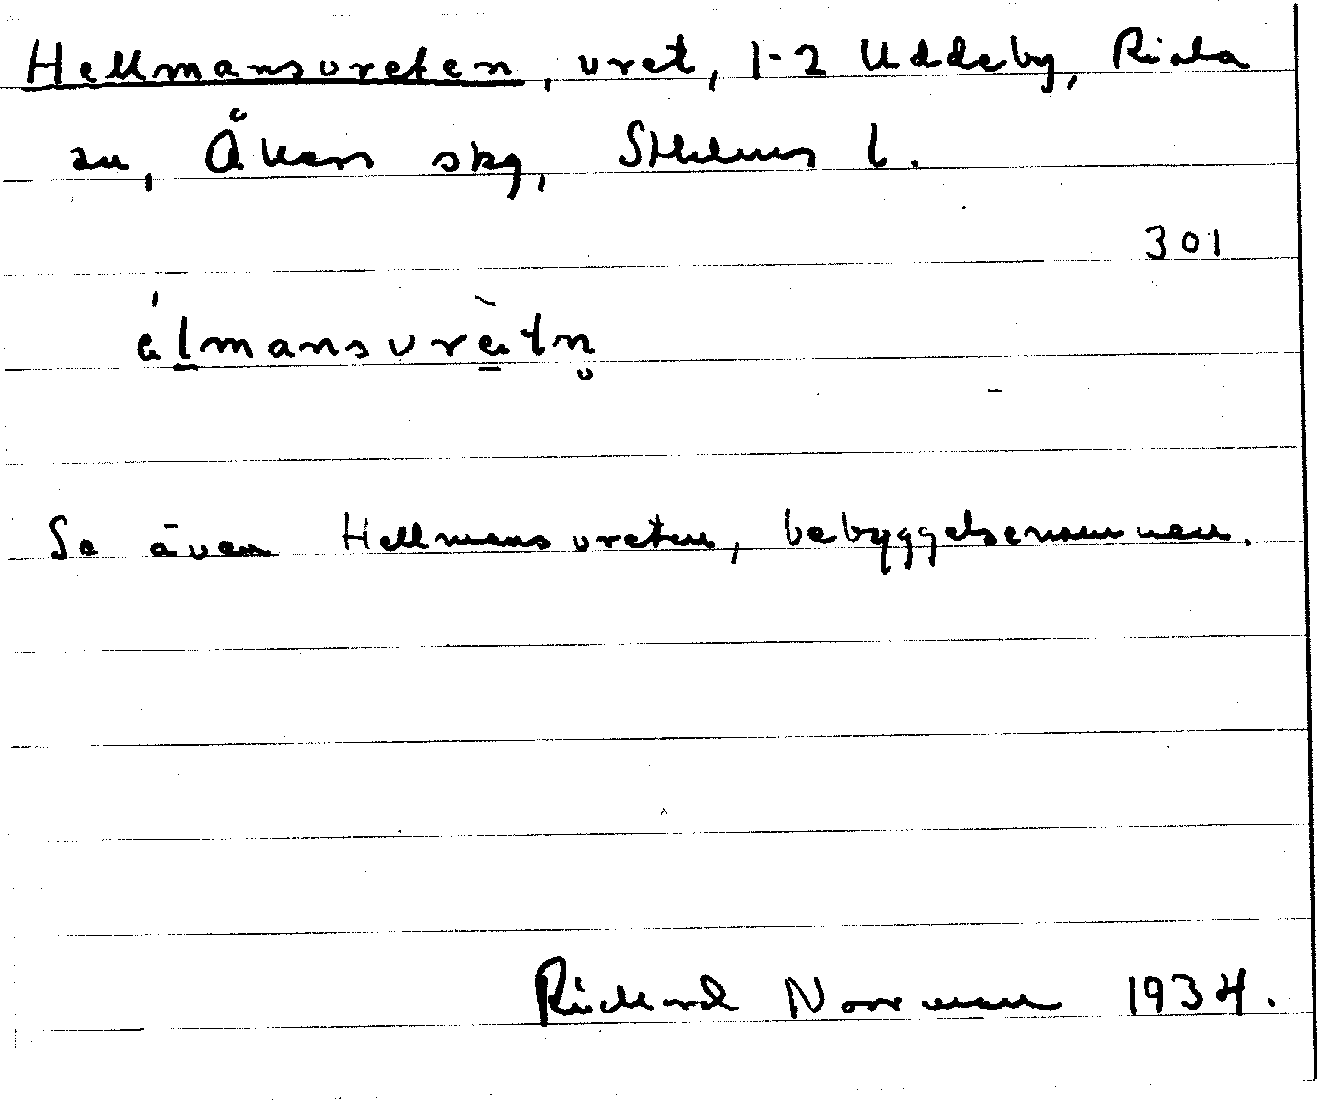 Hellmansvreten, vret, 1-2 Uddeby, Riala
sn, Åkers skg, Sthlms l.
301
élmansvrètn̥
Se även Hellmansvreten, bebyggelsenamnen.
Richard Norrman 1934.